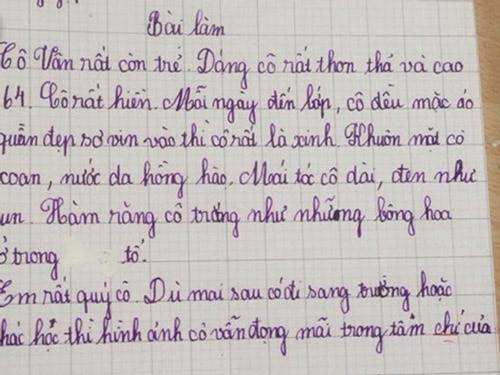 Bài làm
Cô Vân rất còn trẻ. Dáng cô rất thon thả và cao
64. Cô rất hiền. Mỗi ngay đến lớp, cô đều mặc áo
quần đẹp sơ vin vào thì cô rất là xinh. Khuôn mặt cô
coan, nước da hồng hào. Mái tóc cô dài, đen như
un. Hàm răng cô trắng như những bông hoa
ở trong tổ.
Em rất quý cô. Dù mai sau có đi sang trường hoặc
hác học thì hình ảnh cô vẫn đọng mãi trong tâm chí của